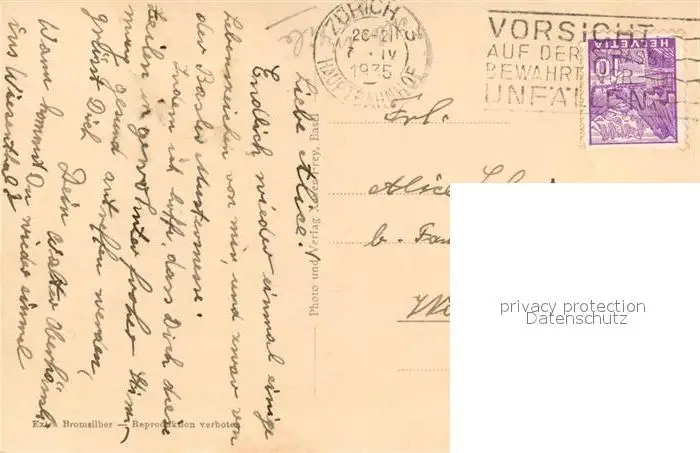 Liebe Alice!
Endlich wieder einmal einige
Lebenszeichen von mir, und zwar von
der Basler Mustermesse.
Indem ich hoffe, dass Dich diese
Zeilen in gewohnter froher Stim-
mung gesund antreffen werden,
grüsst Dich
Dein Walter
Wann kommst Du wieder einmal
ins Wiesenthal?
Photo und Verlag Frey, Basel
Extra Bromsilber — Reproduktion verboten
ZÜRICH
IV
1935
HAUPTBAHNHOF
VORSICHT
AUF DER
BEWAHRT VOR
UNFÄLLEN
HELVETIA
10
Frl.
Alice
b. Fam
privacy protection
Datenschutz